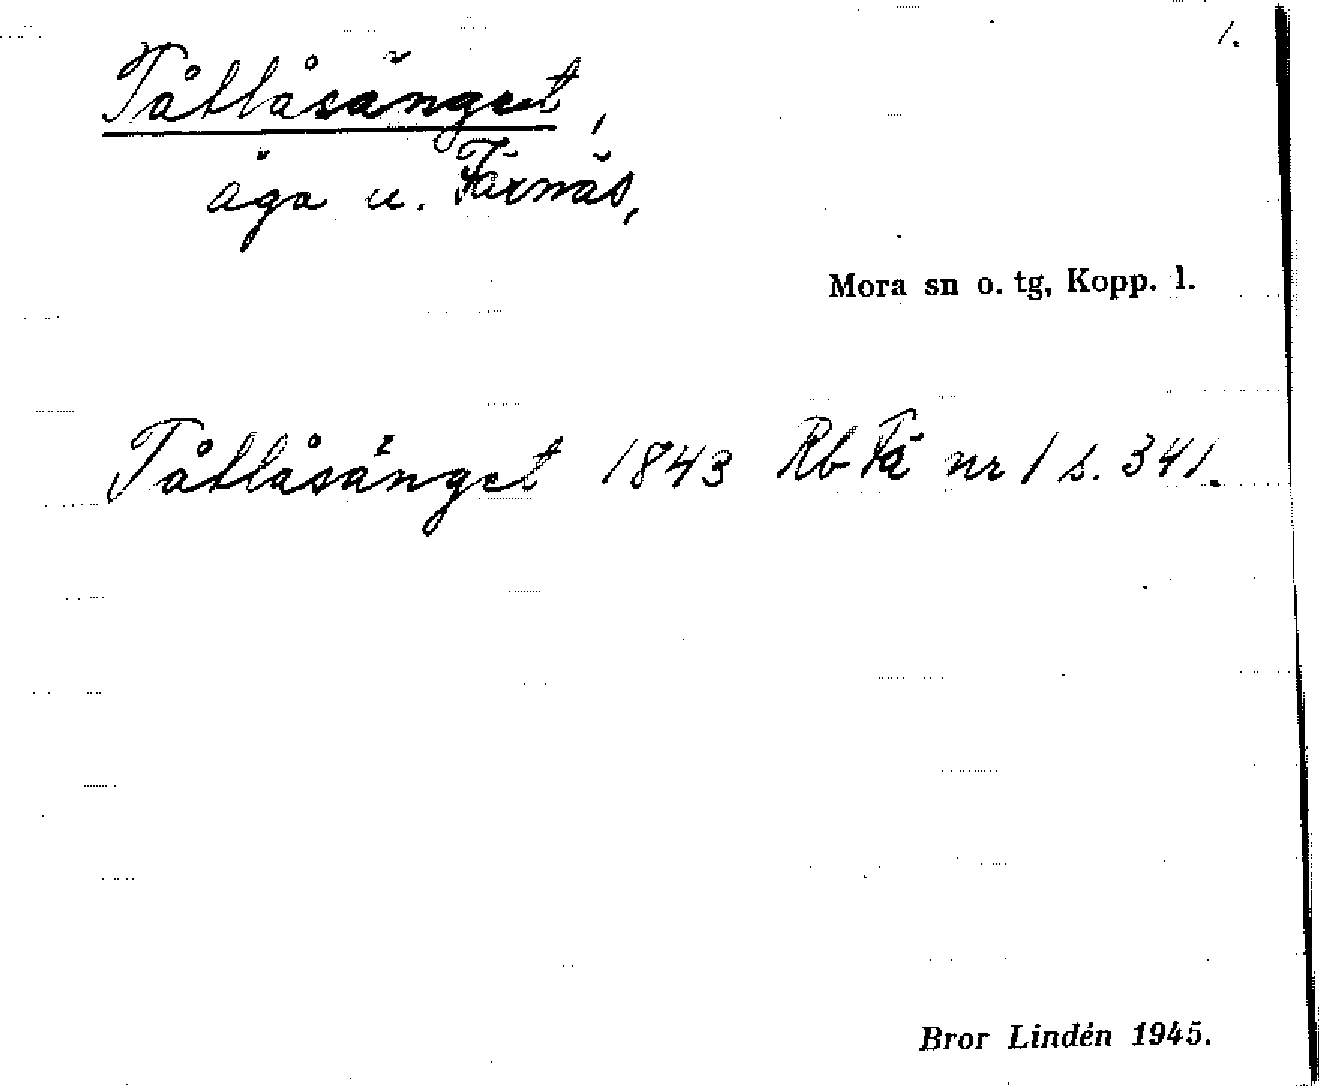 1.
Tåtlåsänget,
äga u. Färnäs,
Mora sn o. tg, Kopp. l.
Tåtlåsänget 1843 Rb Fä nr 1 s. 341.
Bror Lindén 1945.